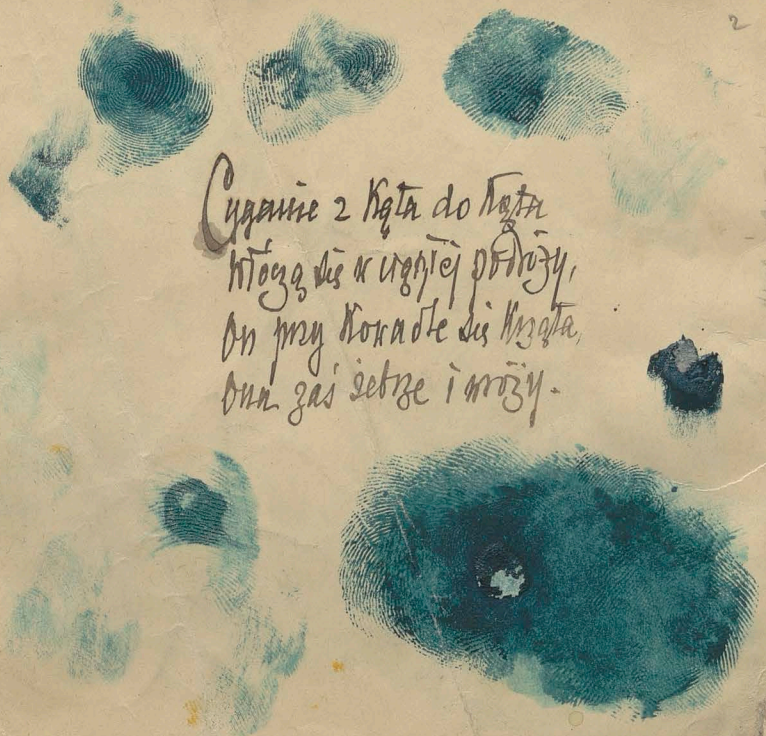 2
Cyganie z Kąta do Kąta
włóczą się w ciągłej podróży,
On przy Kowadle się Krząta,
Ona zaś żebrze i wróży.